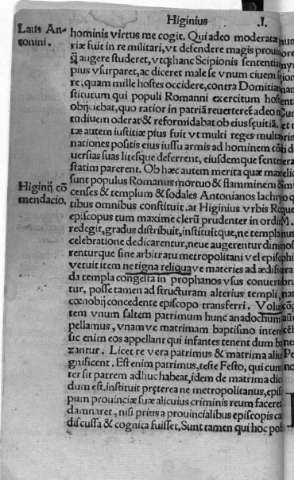 Higinius
Laus An-
tonini.
hominis virtus me cogit. Qui adeo moderata
riæ fuit in re militari, vt defendere magis
q̃ augere studeret, vtq; hanc Scipionis sententiam
pius vsurparet, ac diceret malle se vnum ciuem
re, quam mille hostes occidere, contra Domitia
stitutum qui populi Romani exercitum
objiciebat, quo ratior in patriã reuerteretur, adeo
tudinem oderat & reformidabat ob eius
tæ autem iustitiæ pius fuit vt multi reges
nationes positis eius iussu armis ad hominem
uersias suas litesque deferrent, eiusdemque
statim parerent. Ob hæc autem merita quæ
sunt populus Romanus mortuo & flaminem &
Higinij cõ
mendacio.
censes & templum & sodales Antonianos
tibus omnibus constituit. at Higinius vrbis Romæ
episcopus tum maxime clerũ prudenter in ordinem
redegit, gradus distribuit, instituitque, ne templa
celebratione dedicarentur, neue augerentur
renturque sine arbitratu metropolitani vel
vetuit item ne tigna reliqua ve materies ad ædifi
da templa congesta in prophanos vsus conuerten
tur, posse tamen ad structuram alterius templi,
cœnobij concedente episcopo transferri. Voluit
tem vnum saltem patrimum hunc anadochum
pellamus, vnam ve matrimam baptismo
sic enim eos appellant qui infantes tenent dum
zantur. Licet re vera patrimus & matrima aliud
gnificent. Est enim patrimus, teste Festo, qui cum
ter sit patrem adhuc habeat, idem de matrima
dum est, instituit præterea ne metropolitanus,
pum prouinciæ suæ alicuius criminis reum
damnaret, nisi prius a prouincialibus episcopis
discussa & cognita fuisset, Sunt tamen qui hoc